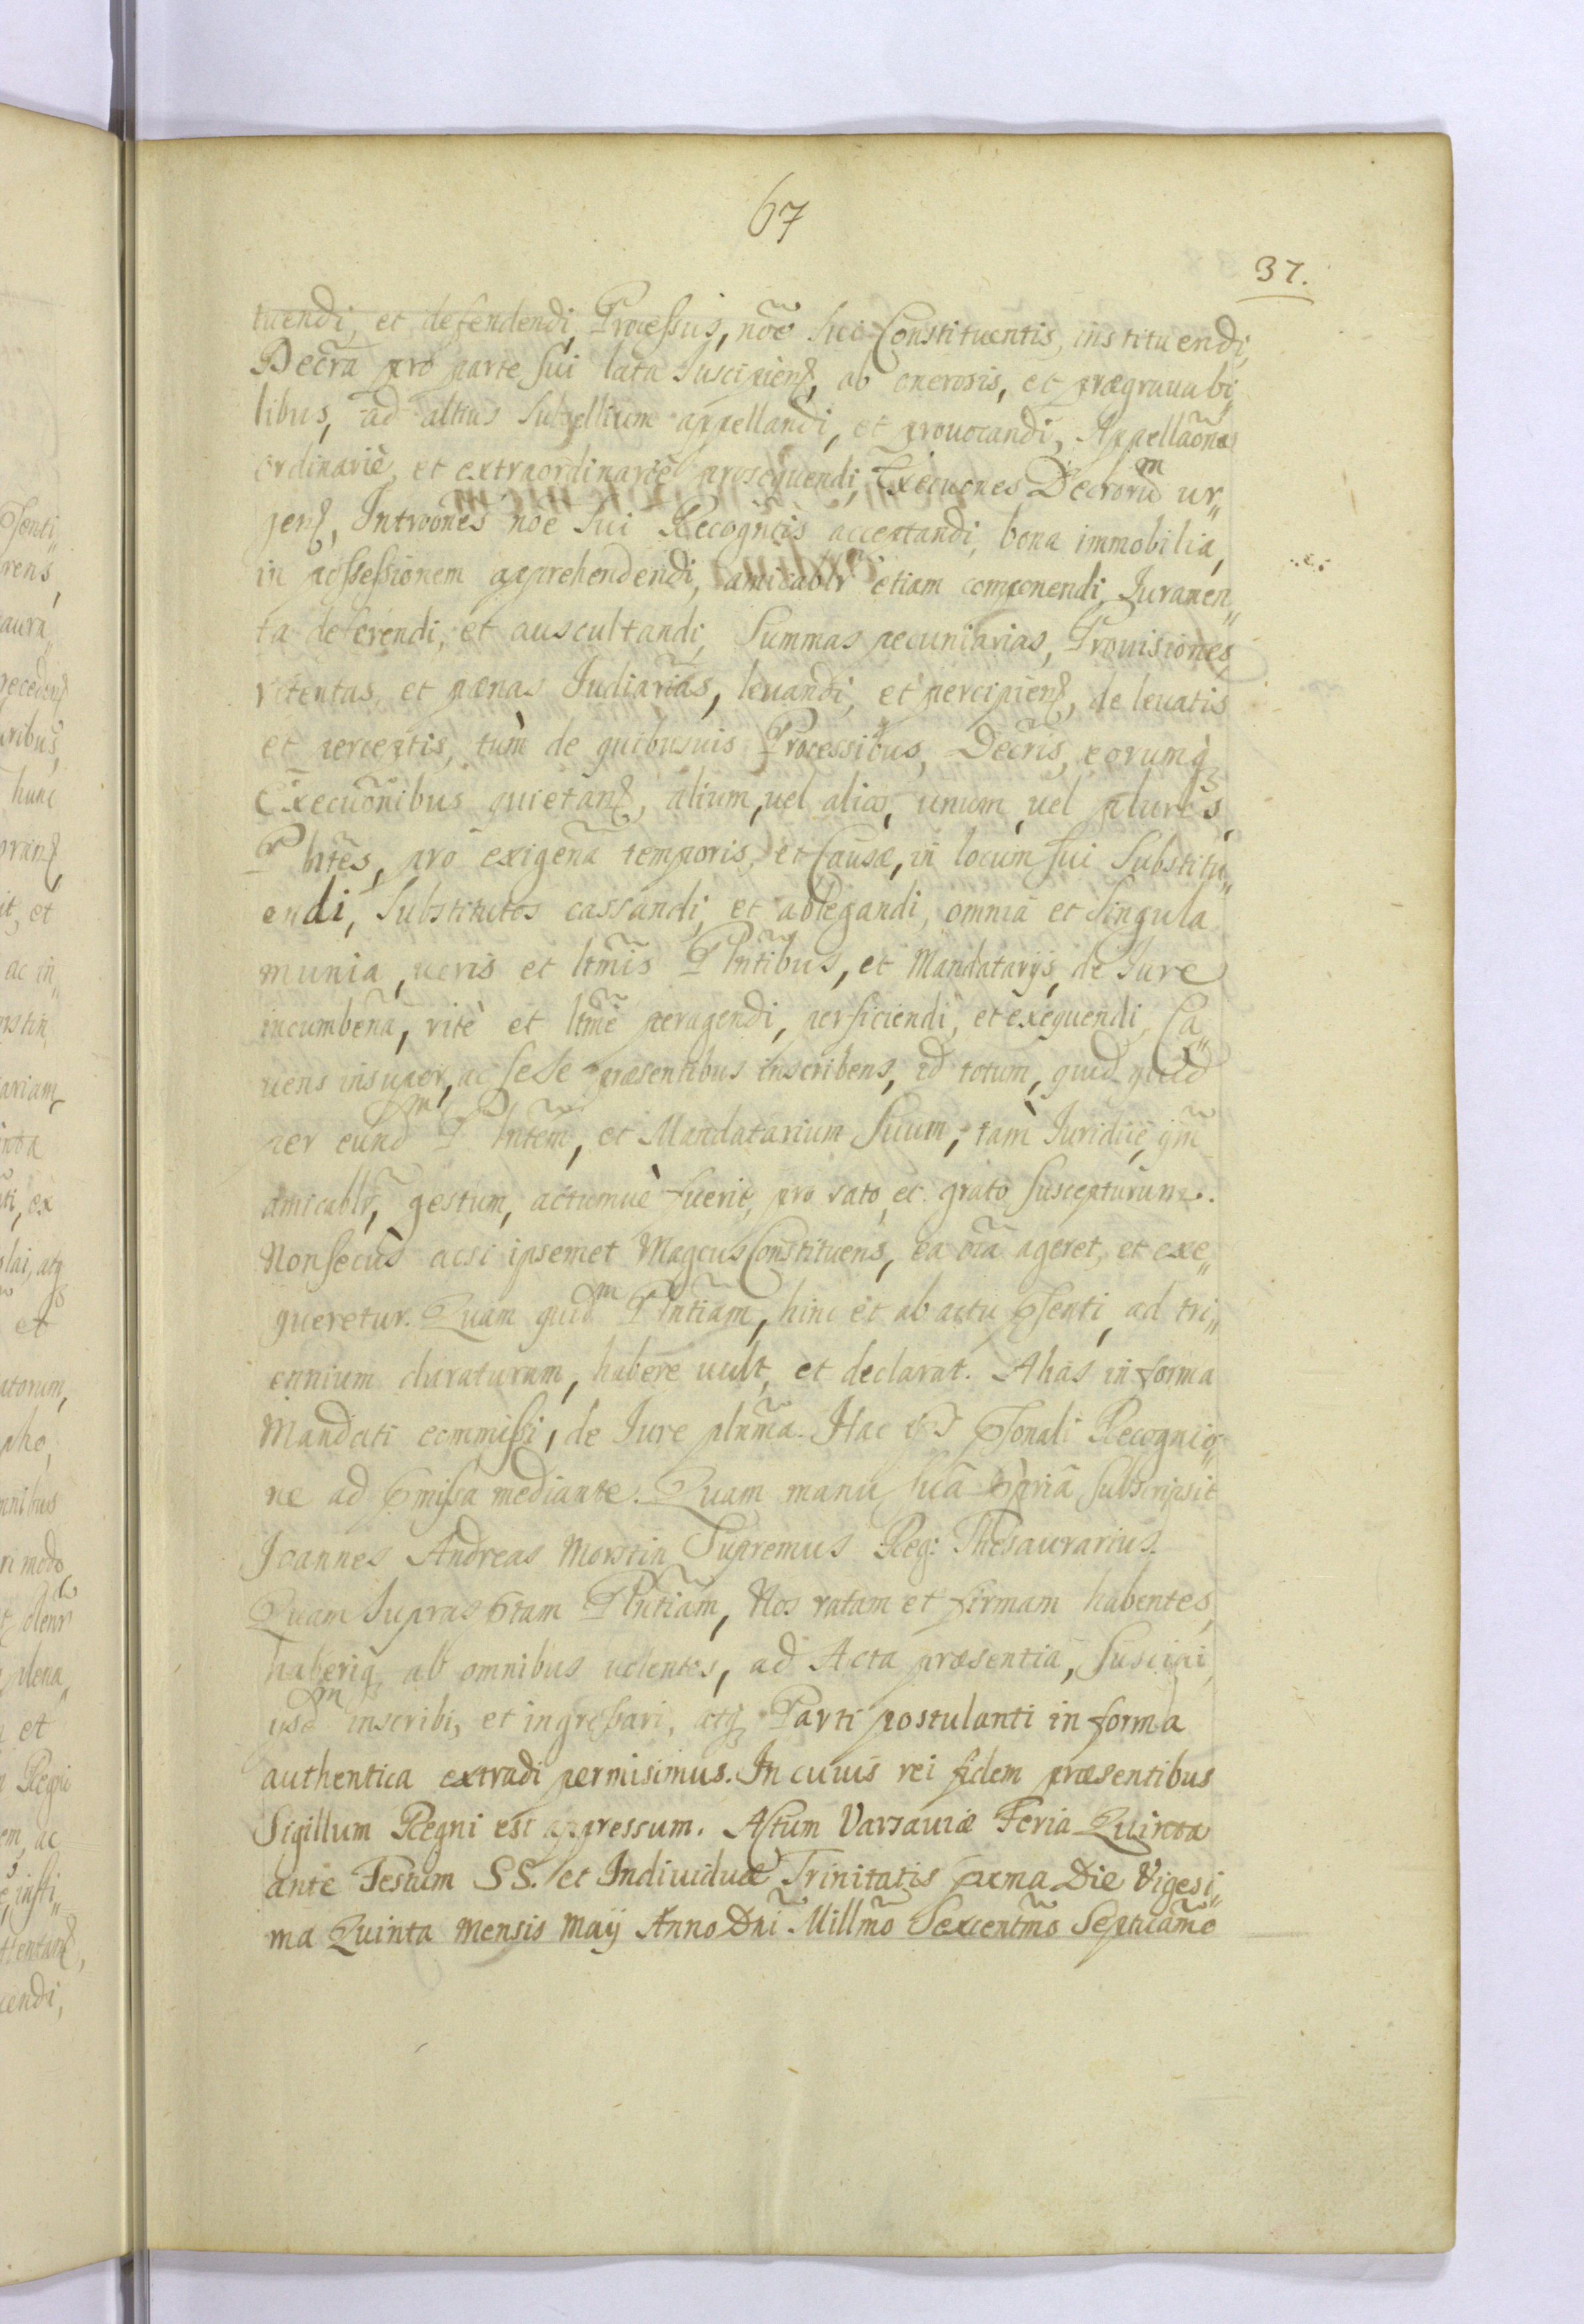 67
37.
tuendi, et defendendi, Processus, nõe sui Constituentis, instituendi,
Decr̃a pro parte sui lata Suscipienđ, ab onerosis, et prægrauabi
libus, ad altius Subsellium appellandi, et prouocandi, Appellaõnes
ordinariè, et extraordinariè prosequendi, Execuc̃nes Decrorũ ur„
genđ, Introõnes nõe sui Recognitis acceptandi, bona immobilia,
in possessionem apprehendendi, amicablr̃ etiam componendi, Iuramen„
ta deferendi, et auscultandi, Summas pecuniarias, Prouisiones
retentas, et pænas Iudiarias, leuandi, et percipienđ, de leuatis
et perceptis, tùm de quibusuis Processibus, Decr̃is, eorumq̃
Execuõnibus quietanđ, alium, uel alios, unum, uel plures,
Plñtes, pro exigeñа temporis, et Causæ, in locum sui Substitu„
endi, Substitutos cassandi, et ablegandi, omnia et singula
munia, ueris et ltm̃is Plñtibus, et Mandatarijs, de Iure
incumbeña, ritè et ltm̃e peragendi, perficiendi, et exequendi, Ca„
uens insuper, ac sese præsentibus inscribens, id totum, quid quid
per eund̃m Plñtem, et Mandatarium suum, tàm Iuridicè, qm̃
amicablr̃, gestum, actumuè fuerit, pro rato, ec. grato suscepturum.
Nonsecùs acsi ipsemet Magcus Constituens, ea oĩa ageret, et exe„
queretur. Quam quid̃m Plñtiam, hinc et ab actu pſenti, ad tri„
ennium duraturam, habere uult, et declarat. Ahas in forma
Mandati commissi, de Iure plnm̃a. Hac psonali Recognio„
ne ad pmissa mediante. Quam manu suâ ppriâ subscripsit
Ioannes Andreas Morstin Supremus Reg: Thesaurarius.
Quam suprasptam Plñtiam, Nos ratam et firmam habentes,
haberiq; ab omnibus uolentes, ad Acta præsentia, Suscipi,
ysd̃m inscribi, et ingrossari, atq; Parti postulanti in forma
authentica extradi permisimus. In cuius rei fidem præsentibus
Sigillum Regni est appressum. Actum Varsauiæ Feria Quinta
ante Festum SS. et Indiuiduæ Trinitatis pxma Die Vigesi„
ma Quinta Mensis Maij Anno Dñi Millm̃o Sexcentm̃o Septuam̃o